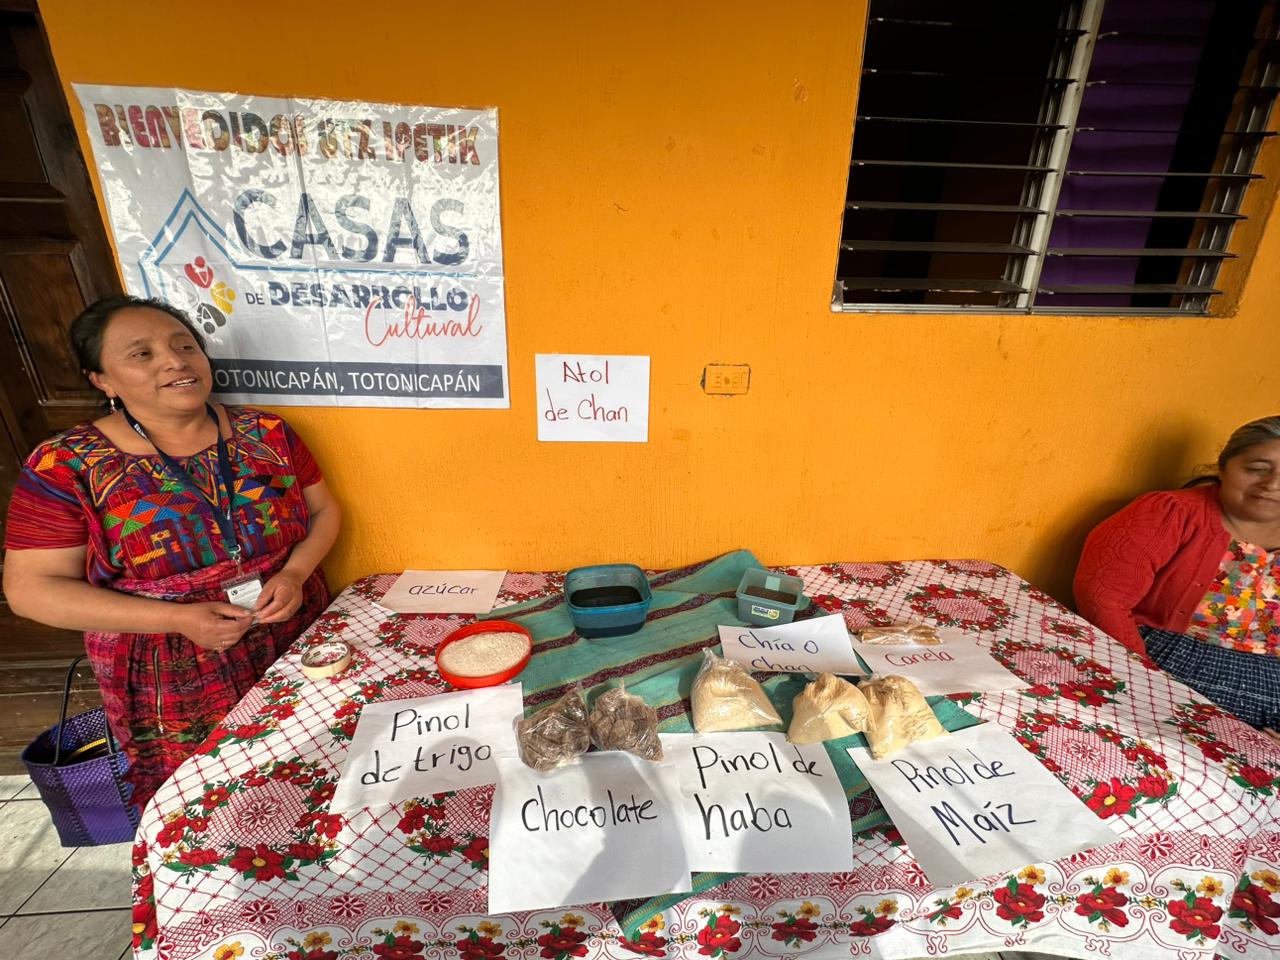 BIENVENIDOS UTZ IPETIK
CASAS
DE DESARROLLO
Cultural
TOTONICAPÁN, TOTONICAPÁN
Atol
de Chan
azúcar
Chía o
chan
Canela
Pinol
de trigo
Chocolate
Pinol de
haba
Pinol de
Maíz